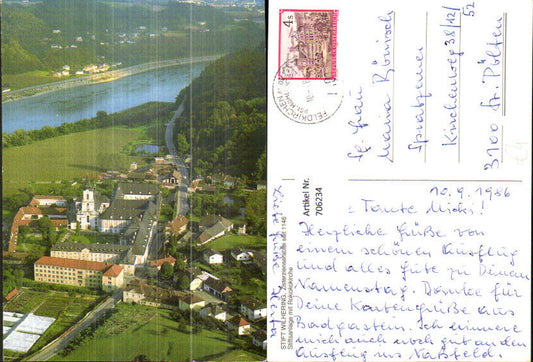 4 S
REPUBLIK ÖSTERREICH
FELDKIRCHEN
Fr. Frau
Maria Römisch
Spratzener
Kirchenweg 38/12/
52
3100 St. Pölten
Artikel Nr.
706234
STIFT WILHERING, Zisterzienserabtei seit 1146
Stiftsanlage mit Rokokokirche
10.9.1986
Tante Mitzi!
Herzliche Grüße von
einem schönen Ausflug
und alles Gute zu Deinem
Namenstag. Danke für
Deine Kartengrüße aus
Badgastein. Ich erinnere
mich auch noch gut an den
Ausflug ins Naßfeld.